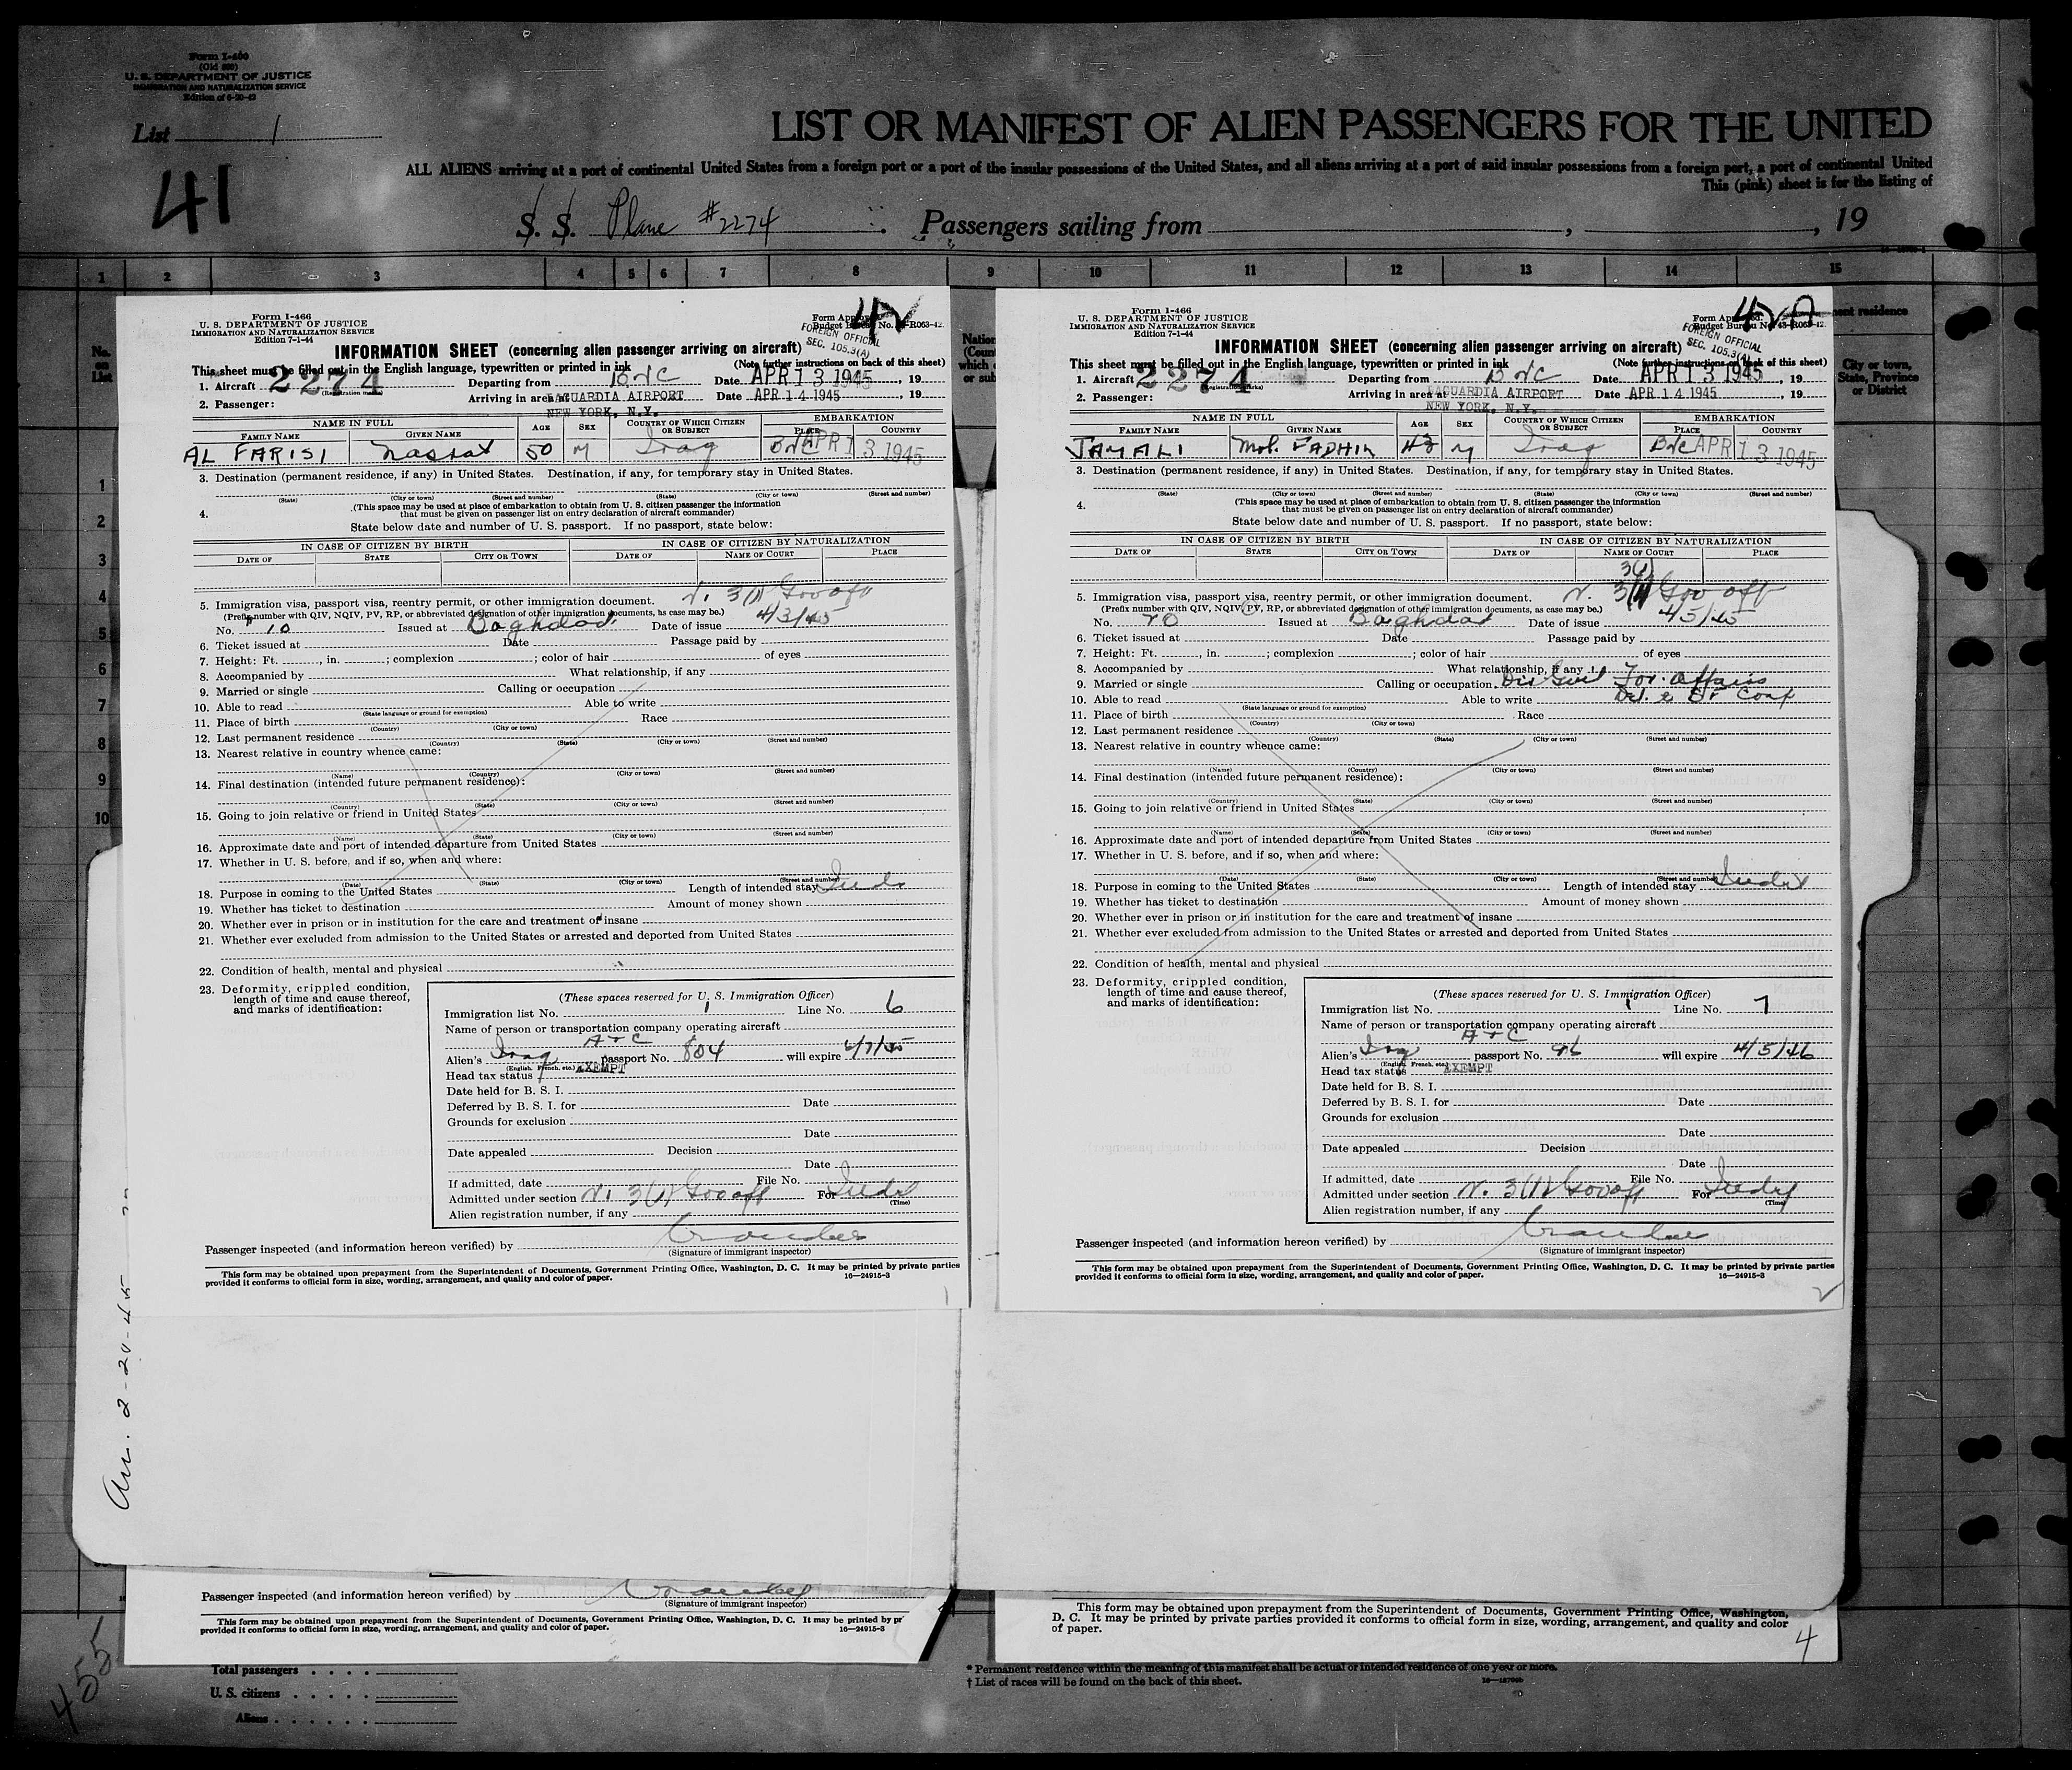 Form I-466
(Old 500)
U. S. DEPARTMENT OF JUSTICE
IMMIGRATION AND NATURALIZATION SERVICE
Edition of 6-20-42
List 1
41
LIST OR MANIFEST OF ALIEN PASSENGERS FOR THE UNITED
ALL ALIENS arriving at a port of continental United States from a foreign port or a port of the insular possessions of the United States, and all aliens arriving at a port of said insular possessions from a foreign port, a port of continental United
This (pink) sheet is for the listing of
S. S. Plane #2274 Passengers sailing from , , 19
1 2 3 4 5 6 7 8 9 10 11 12 13 14 15
No. on List
1
2
3
4
5
6
7
8
9
10
Form I-466
U. S. DEPARTMENT OF JUSTICE
IMMIGRATION AND NATURALIZATION SERVICE
Edition 7-1-44
4
FOREIGN OFFICIAL
SEC. 105.3(A)
INFORMATION SHEET (concerning alien passenger arriving on aircraft)
This sheet must be filled out in the English language, typewritten or printed in ink (Note further instructions on back of this sheet)
1. Aircraft 2274 Departing from Date APR 13 1945, 19
(Registration marks)
2. Passenger: Arriving in area at LAGUARDIA AIRPORT Date APR 14 1945, 19
NEW YORK, N.Y.
NAME IN FULL AGE SEX COUNTRY OF WHICH CITIZEN OR SUBJECT EMBARKATION
FAMILY NAME GIVEN NAME PLACE COUNTRY
AL FARISI Nassrat 50 M Iraq APR 13 1945
3. Destination (permanent residence, if any) in United States. Destination, if any, for temporary stay in United States.
(State) (City or town) (Street and number) (State) (City or town) (Street and number)
4. (This space may be used at place of embarkation to obtain from U. S. citizen passenger the information
that must be given on passenger list on entry declaration of aircraft commander)
State below date and number of U. S. passport. If no passport, state below:
IN CASE OF CITIZEN BY BIRTH IN CASE OF CITIZEN BY NATURALIZATION
DATE OF STATE CITY OR TOWN DATE OF NAME OF COURT PLACE
5. Immigration visa, passport visa, reentry permit, or other immigration document. N. 3(1) Gov off
(Prefix number with QIV, NQIV, PV, RP, or abbreviated designation of other immigration documents, as case may be.)
No. 10 Issued at Baghdad Date of issue 4/3/45
6. Ticket issued at Date Passage paid by
7. Height: Ft. , in. ; complexion ; color of hair of eyes
8. Accompanied by What relationship, if any
9. Married or single Calling or occupation
10. Able to read Able to write
(State language or ground for exemption)
11. Place of birth Race
(Country) (City or town)
12. Last permanent residence
(Country) (State) (City or town) (Street and number)
13. Nearest relative in country whence came:
(Name) (Country) (City or town) (Street and number)
14. Final destination (intended future permanent residence):
(Country) (State) (City or town) (Street and number)
15. Going to join relative or friend in United States
(Name) (State) (City or town) (Street and number)
16. Approximate date and port of intended departure from United States
17. Whether in U. S. before, and if so, when and where:
(Date) (State) (City or town) (Street and number)
18. Purpose in coming to the United States Length of intended stay
19. Whether has ticket to destination Amount of money shown
20. Whether ever in prison or in institution for the care and treatment of insane
21. Whether ever excluded from admission to the United States or arrested and deported from United States
22. Condition of health, mental and physical
23. Deformity, crippled condition,
length of time and cause thereof,
and marks of identification:
(These spaces reserved for U. S. Immigration Officer)
Immigration list No. 1 Line No. 6
Name of person or transportation company operating aircraft
Alien's Iraq passport No. 804 will expire
(English, French, etc.)
Head tax status EXEMPT
Date held for B. S. I.
Deferred by B. S. I. for Date
Grounds for exclusion
Date
Date appealed Decision
Date
If admitted, date File No.
Admitted under section N. 3(1) Gov off For
(Time)
Alien registration number, if any
Passenger inspected (and information hereon verified) by
(Signature of immigrant inspector)
This form may be obtained upon prepayment from the Superintendent of Documents, Government Printing Office, Washington, D. C. It may be printed by private parties
provided it conforms to official form in size, wording, arrangement, and quality and color of paper. 16—24915-3
Form I-466
U. S. DEPARTMENT OF JUSTICE
IMMIGRATION AND NATURALIZATION SERVICE
Edition 7-1-44
4
FOREIGN OFFICIAL
SEC. 105.3(A)
INFORMATION SHEET (concerning alien passenger arriving on aircraft)
This sheet must be filled out in the English language, typewritten or printed in ink (Note further instructions on back of this sheet)
1. Aircraft 2274 Departing from Date APR 13 1945, 19
(Registration marks)
2. Passenger: Arriving in area at LAGUARDIA AIRPORT Date APR 14 1945, 19
NEW YORK, N.Y.
NAME IN FULL AGE SEX COUNTRY OF WHICH CITIZEN OR SUBJECT EMBARKATION
FAMILY NAME GIVEN NAME PLACE COUNTRY
JAMALI Moh. FADHIL 43 M Iraq APR 13 1945
3. Destination (permanent residence, if any) in United States. Destination, if any, for temporary stay in United States.
(State) (City or town) (Street and number) (State) (City or town) (Street and number)
4. (This space may be used at place of embarkation to obtain from U. S. citizen passenger the information
that must be given on passenger list on entry declaration of aircraft commander)
State below date and number of U. S. passport. If no passport, state below:
IN CASE OF CITIZEN BY BIRTH IN CASE OF CITIZEN BY NATURALIZATION
DATE OF STATE CITY OR TOWN DATE OF NAME OF COURT PLACE
3(1)
5. Immigration visa, passport visa, reentry permit, or other immigration document. N. 3(1) Gov off
(Prefix number with QIV, NQIV, PV, RP, or abbreviated designation of other immigration documents, as case may be.)
No. 70 Issued at Baghdad Date of issue 4/5/45
6. Ticket issued at Date Passage paid by
7. Height: Ft. , in. ; complexion ; color of hair of eyes
8. Accompanied by What relationship, if any
9. Married or single Calling or occupation For. Affairs
10. Able to read Able to write Conf
(State language or ground for exemption)
11. Place of birth Race
(Country) (City or town)
12. Last permanent residence
(Country) (State) (City or town) (Street and number)
13. Nearest relative in country whence came:
(Name) (Country) (City or town) (Street and number)
14. Final destination (intended future permanent residence):
(Country) (State) (City or town) (Street and number)
15. Going to join relative or friend in United States
(Name) (State) (City or town) (Street and number)
16. Approximate date and port of intended departure from United States
17. Whether in U. S. before, and if so, when and where:
(Date) (State) (City or town) (Street and number)
18. Purpose in coming to the United States Length of intended stay
19. Whether has ticket to destination Amount of money shown
20. Whether ever in prison or in institution for the care and treatment of insane
21. Whether ever excluded from admission to the United States or arrested and deported from United States
22. Condition of health, mental and physical
23. Deformity, crippled condition,
length of time and cause thereof,
and marks of identification:
(These spaces reserved for U. S. Immigration Officer)
Immigration list No. 1 Line No. 7
Name of person or transportation company operating aircraft
Alien's Iraq passport No. 96 will expire 4/5/46
(English, French, etc.)
Head tax status EXEMPT
Date held for B. S. I.
Deferred by B. S. I. for Date
Grounds for exclusion
Date
Date appealed Decision
Date
If admitted, date File No.
Admitted under section N. 3(1) Gov off For
(Time)
Alien registration number, if any
Passenger inspected (and information hereon verified) by
(Signature of immigrant inspector)
This form may be obtained upon prepayment from the Superintendent of Documents, Government Printing Office, Washington, D. C. It may be printed by private parties
provided it conforms to official form in size, wording, arrangement, and quality and color of paper. 16—24915-3
Passenger inspected (and information hereon verified) by
(Signature of immigrant inspector)
This form may be obtained upon prepayment from the Superintendent of Documents, Government Printing Office, Washington, D. C. It may be printed by
provided it conforms to official form in size, wording, arrangement, and quality and color of paper. 16—24915-3
This form may be obtained upon prepayment from the Superintendent of Documents, Government Printing Office, Washington,
D. C. It may be printed by private parties provided it conforms to official form in size, wording, arrangement, and quality and color
of paper.
4
Total passengers
U. S. citizens
Aliens
* Permanent residence within the meaning of this manifest shall be actual or intended residence of one year or more.
† List of races will be found on the back of this sheet.
455